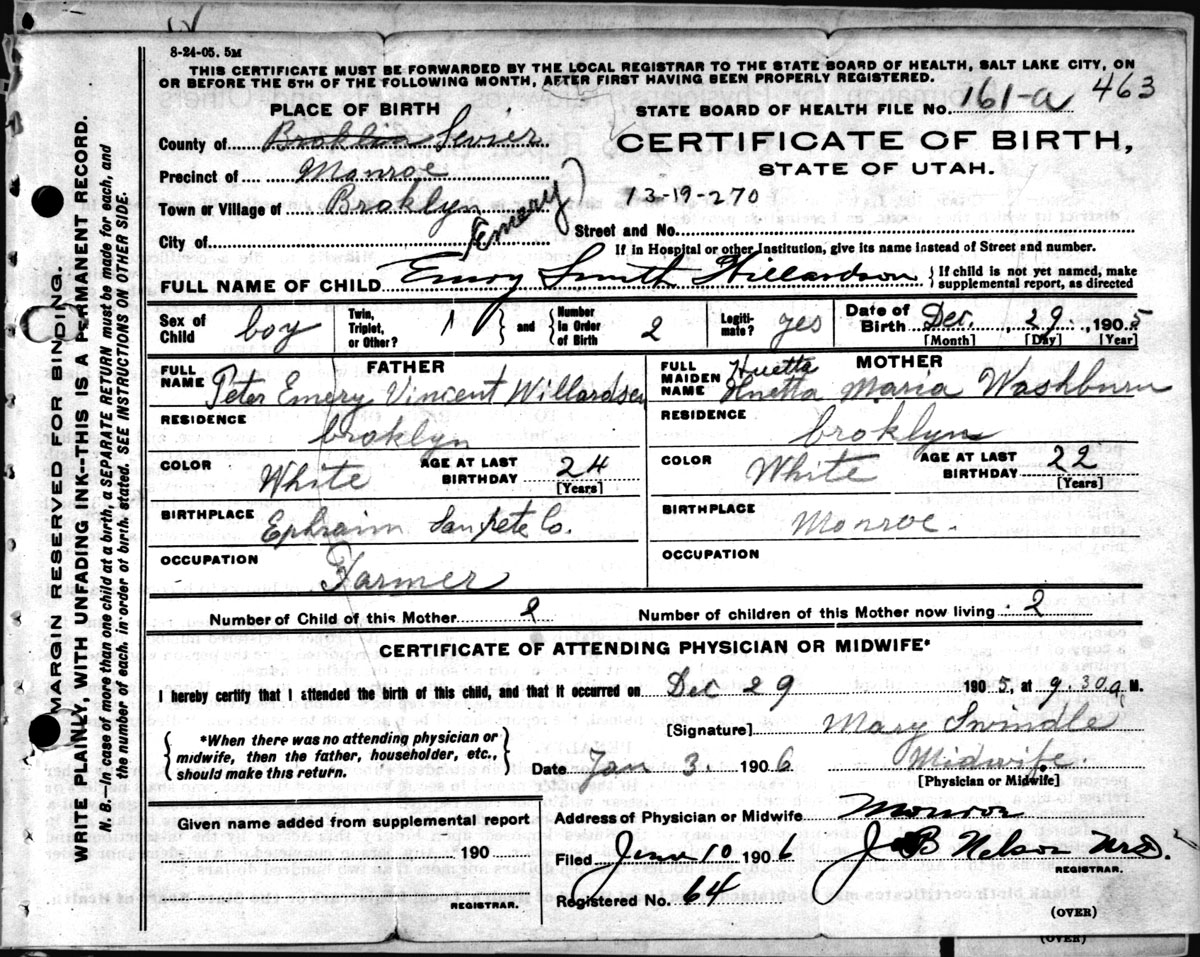 8-24-05. 5M
THIS CERTIFICATE MUST BE FORWARDED BY THE LOCAL REGISTRAR TO THE STATE BOARD OF HEALTH, SALT LAKE CITY, ON
OR BEFORE THE 5TH OF THE FOLLOWING MONTH, AFTER FIRST HAVING BEEN PROPERLY REGISTERED.
463
PLACE OF BIRTH
STATE BOARD OF HEALTH FILE NO. 161-a
County of Broklin Sevier
CERTIFICATE OF BIRTH,
STATE OF UTAH.
Precinct of Monroe
Town or Village of Broklyn
13-19-270
(Emery)
City of
Street and No.
If in Hospital or other Institution, give its name instead of Street and number.
FULL NAME OF CHILD Emry Smith Willardson
{If child is not yet named, make
supplemental report, as directed
Sex of Child boy
Twin, Triplet, or Other? 1
and Number in Order of Birth 2
Legiti-mate? yes
Date of Birth Dec. 29. 1905
[Month] [Day] [Year]
FATHER
FULL NAME Peter Emery Vincent Willardsen
RESIDENCE broklyn
COLOR White
AGE AT LAST BIRTHDAY 24
[Years]
BIRTHPLACE Ephraim Sanpete Co.
OCCUPATION Farmer
MOTHER
Huetta
FULL MAIDEN NAME Huetta Maria Washburn
RESIDENCE broklyn
COLOR White
AGE AT LAST BIRTHDAY 22
[Years]
BIRTHPLACE Monroe.
OCCUPATION
Number of Child of this Mother 2
Number of children of this Mother now living 2
CERTIFICATE OF ATTENDING PHYSICIAN OR MIDWIFE*
I hereby certify that I attended the birth of this child, and that it occurred on Dec 29 1905, at 9.30 a M.
{*When there was no attending physician or
midwife, then the father, householder, etc.,
should make this return.}
[Signature] Mary Swindle
Date Jan 3. 1906
Midwife.
[Physician or Midwife]
Given name added from supplemental report
190
REGISTRAR.
Address of Physician or Midwife Monroe
Filed Jan 10 1906
J B Nelson
REGISTRAR.
Registered No. 64
(OVER)
(OVER)
MARGIN RESERVED FOR BINDING.
WRITE PLAINLY, WITH UNFADING INK--THIS IS A PERMANENT RECORD.
N. B.—In case of more than one child at a birth, a SEPARATE RETURN must be made for each, and
the number of each, in order of birth, stated. SEE INSTRUCTIONS ON OTHER SIDE.